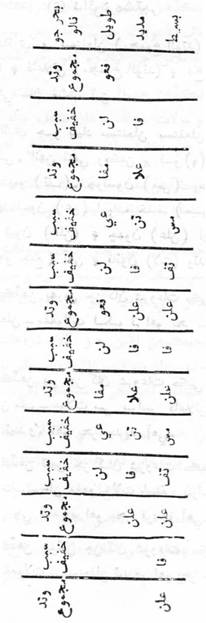 بحر جو نالو وتد مجموع سبب خفيف وتد مجموع سبب خفيف سبب خفيف وتد مجموع سبب خفيف وتد مجموع سبب خفيف سبب خفيف وتد مجموع سبب خفيف وتد مجموع
طويل فعو لن مفا عي لن فعو لن مفا عي لن
مديد فا علا تن فا علن فا علا تن فا علن
بسيط مس تف علن فا علن مس تف علن فا علن